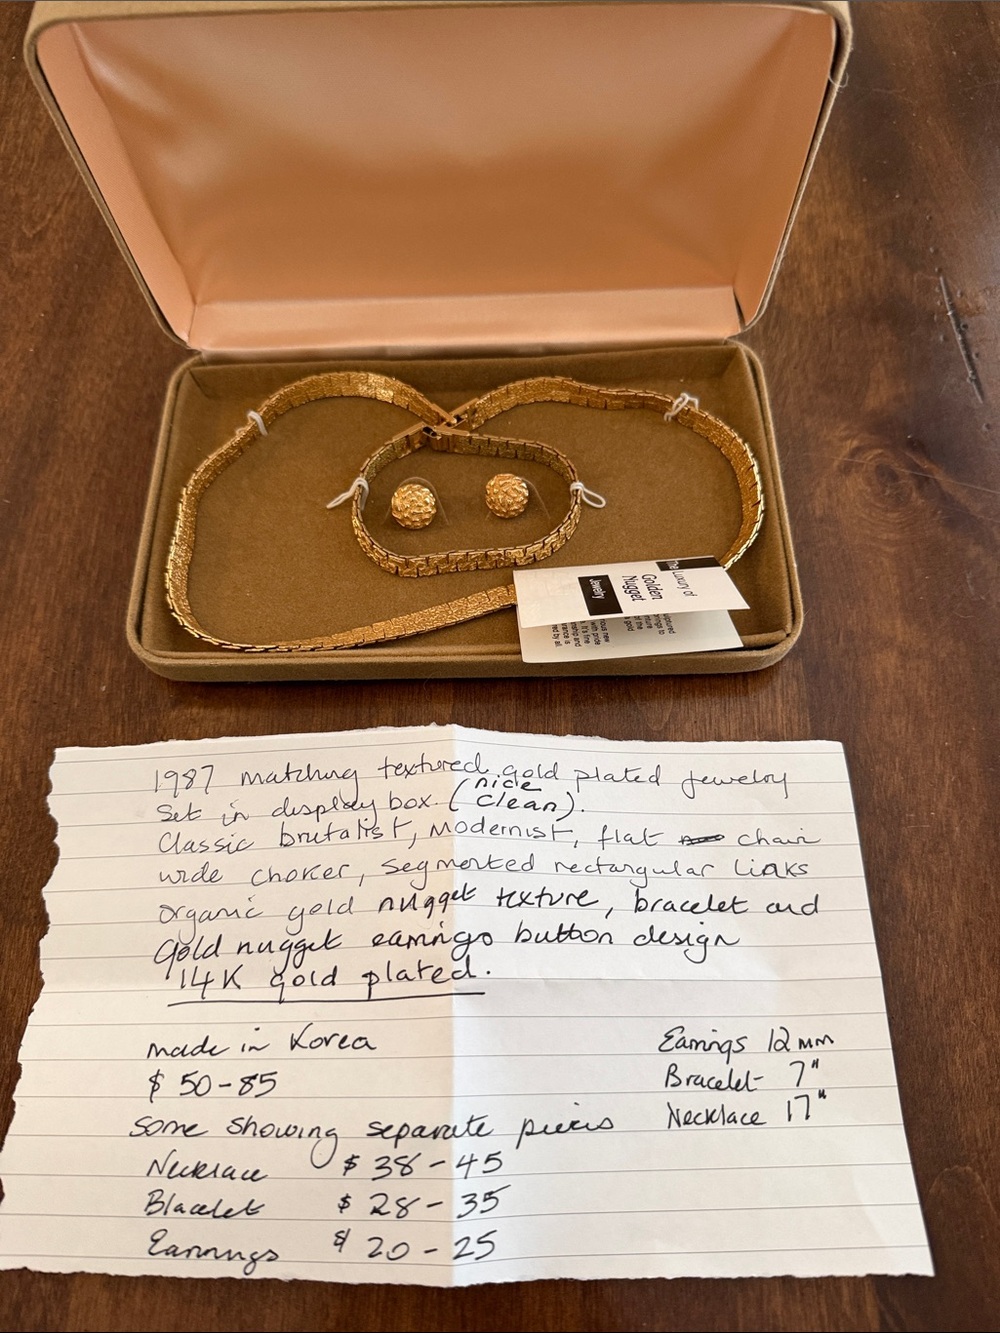 The Luxury of
Golden
Nugget
Jewelry
1987 matching textured gold plated jewelry
set in display box. (nice clean).
Classic brutalist, modernist, flat chain
wide choker, segmented rectangular links
organic gold nugget texture, bracelet and
gold nugget earrings button design
14K gold plated.
made in Korea
$ 50-85
some showing separate pieces
Necklace $ 38-45
Blacelet $ 28-35
Earnings $ 20-25
Earrings 12 mm
Bracelet 7"
Necklace 17"